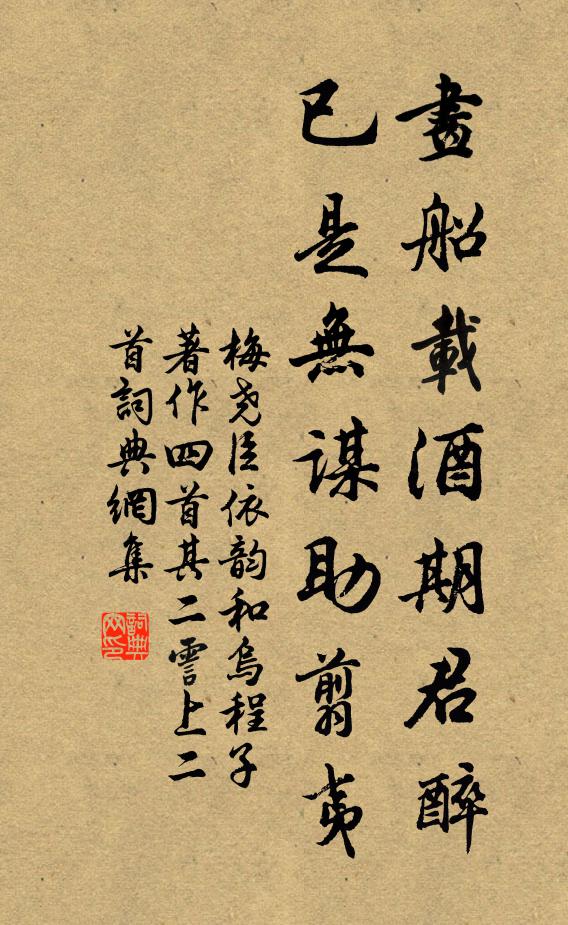 畫船載酒期君醉
已是無謀助翦夷
梅堯臣依韵和烏程子
著作四首其二霅上二
首詞典網集
詞典網印